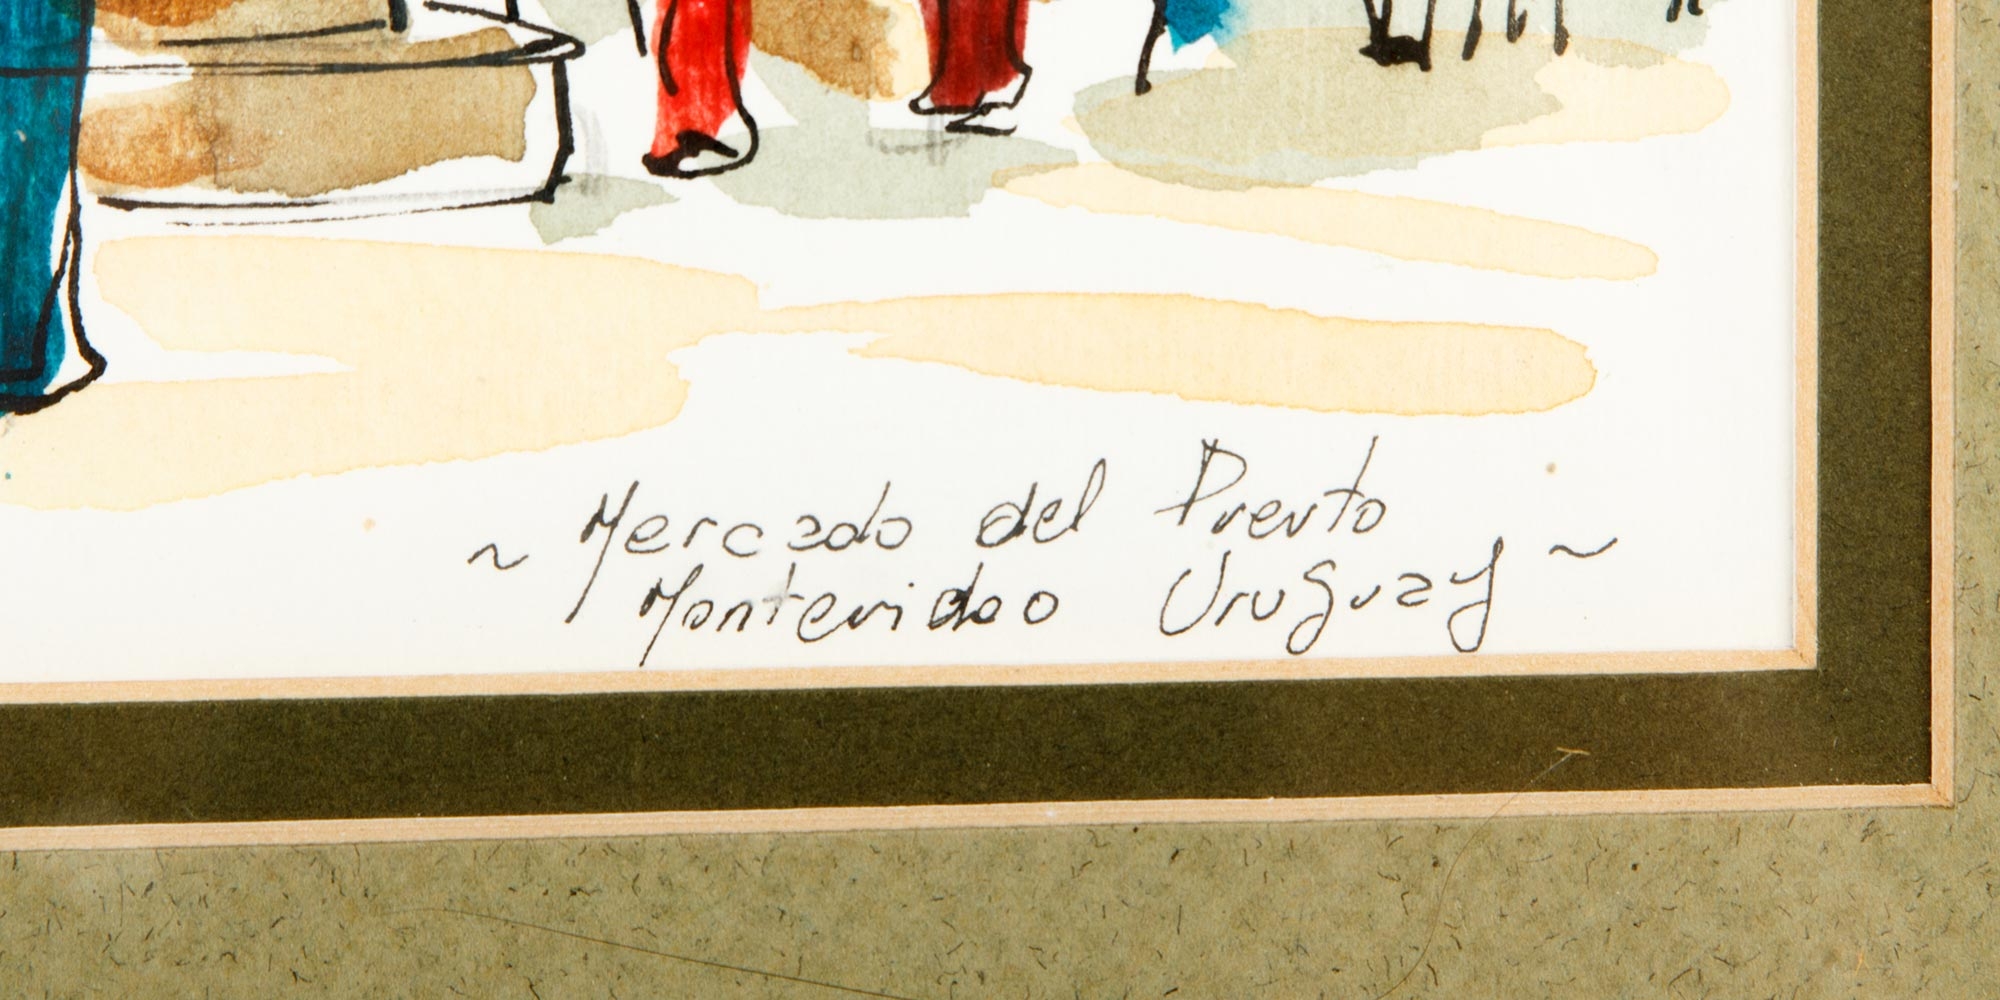 ~ Mercado del Puerto
Montevideo Uruguay ~